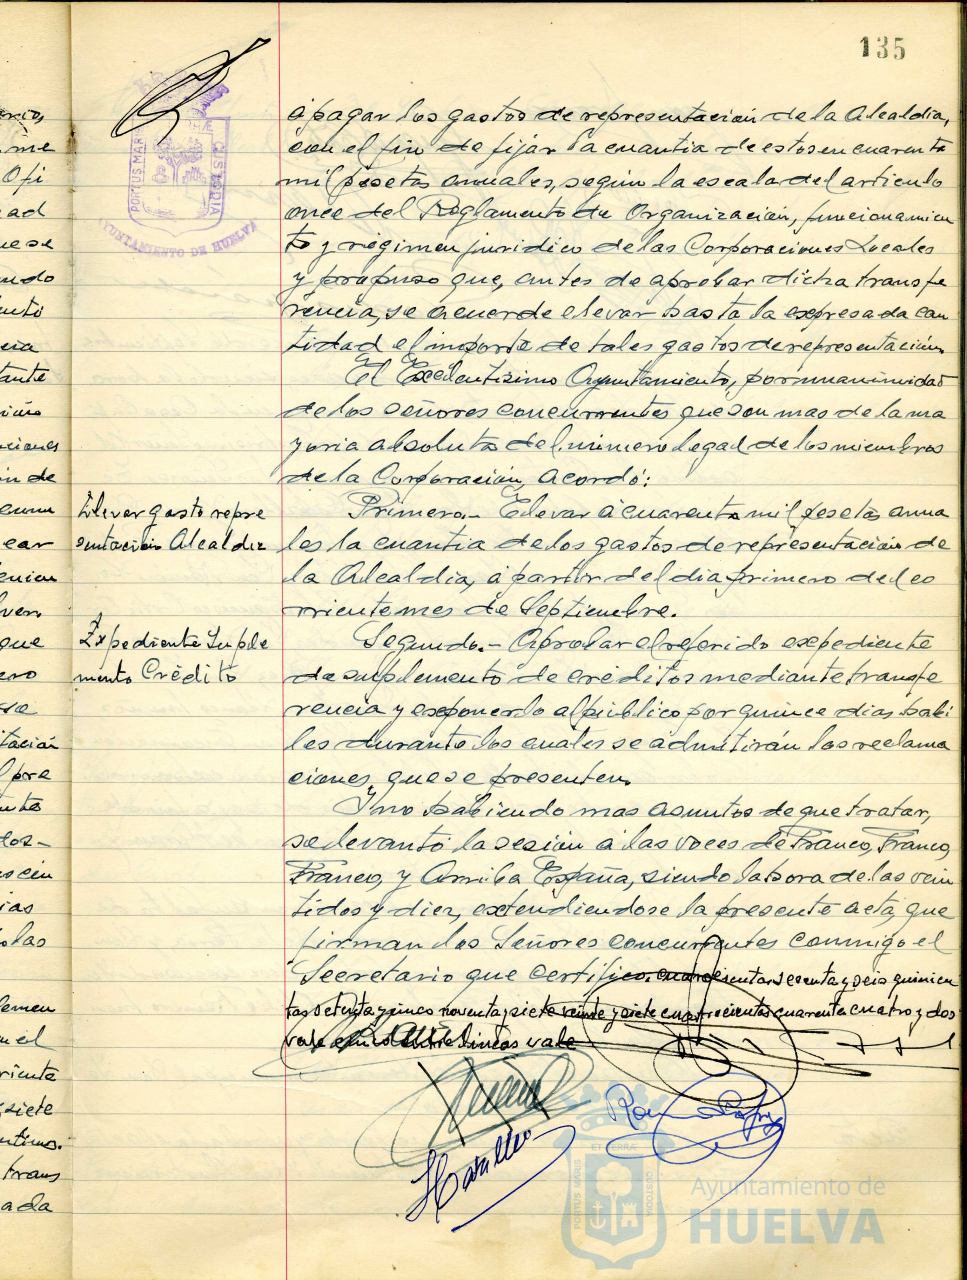 135
a pagar los gastos de representación de la Alcaldia,
con el fin de fijar la cuantia de estos en cuarenta
mil pesetas anuales, según la escala del articulo
once del Reglamento de Organización, funcionamien
to y régimen juridico de las Corporaciones Locales
y propuso que, antes de aprobar dicha transfe
rencia, se acuerde elevar hasta la expresada can
tidad el importe de tales gastos de representación.
El Excelentisimo Ayuntamiento, por unanimidad
de los señores concurrentes que son mas de la ma
yoria absoluta del número legal de los miembros
de la Corporación, acordó:
Elevar gasto repre
sentación Alcaldia
Primero.- Elevar a cuarenta mil pesetas anua
les la cuantia de los gastos de representación de
la Alcaldia, a partir del dia primero del co
rriente mes de Septiembre.
Expediente Suple
mento Crédito
Segundo.- Aprobar el referido expediente
de suplemento de créditos mediante transfe
rencia y exponerlo al público por quince dias habi
les durante los cuales se admitirán las reclama
ciones que se presenten.
Y no habiendo mas asuntos de que tratar,
se levantó la sesión a las voces de Franco, Franco,
Franco, y Arriba España, siendo la hora de las vein
tidos y diez, extendiendose la presente acta, que
firman los Señores concurrentes conmigo el
Secretario que certifico. sesenta y seis quinien
tas setenta y cinco noventa y siete veinte y siete cuatrocientas cuarenta cuatro y dos
vale entre lineas vale
PORTUS MARIS
CUSTODIA
AYUNTAMIENTO DE HUELVA
ET TERRÆ
PORTUS MARIS
CUSTODIA
Ayuntamiento de
HUELVA